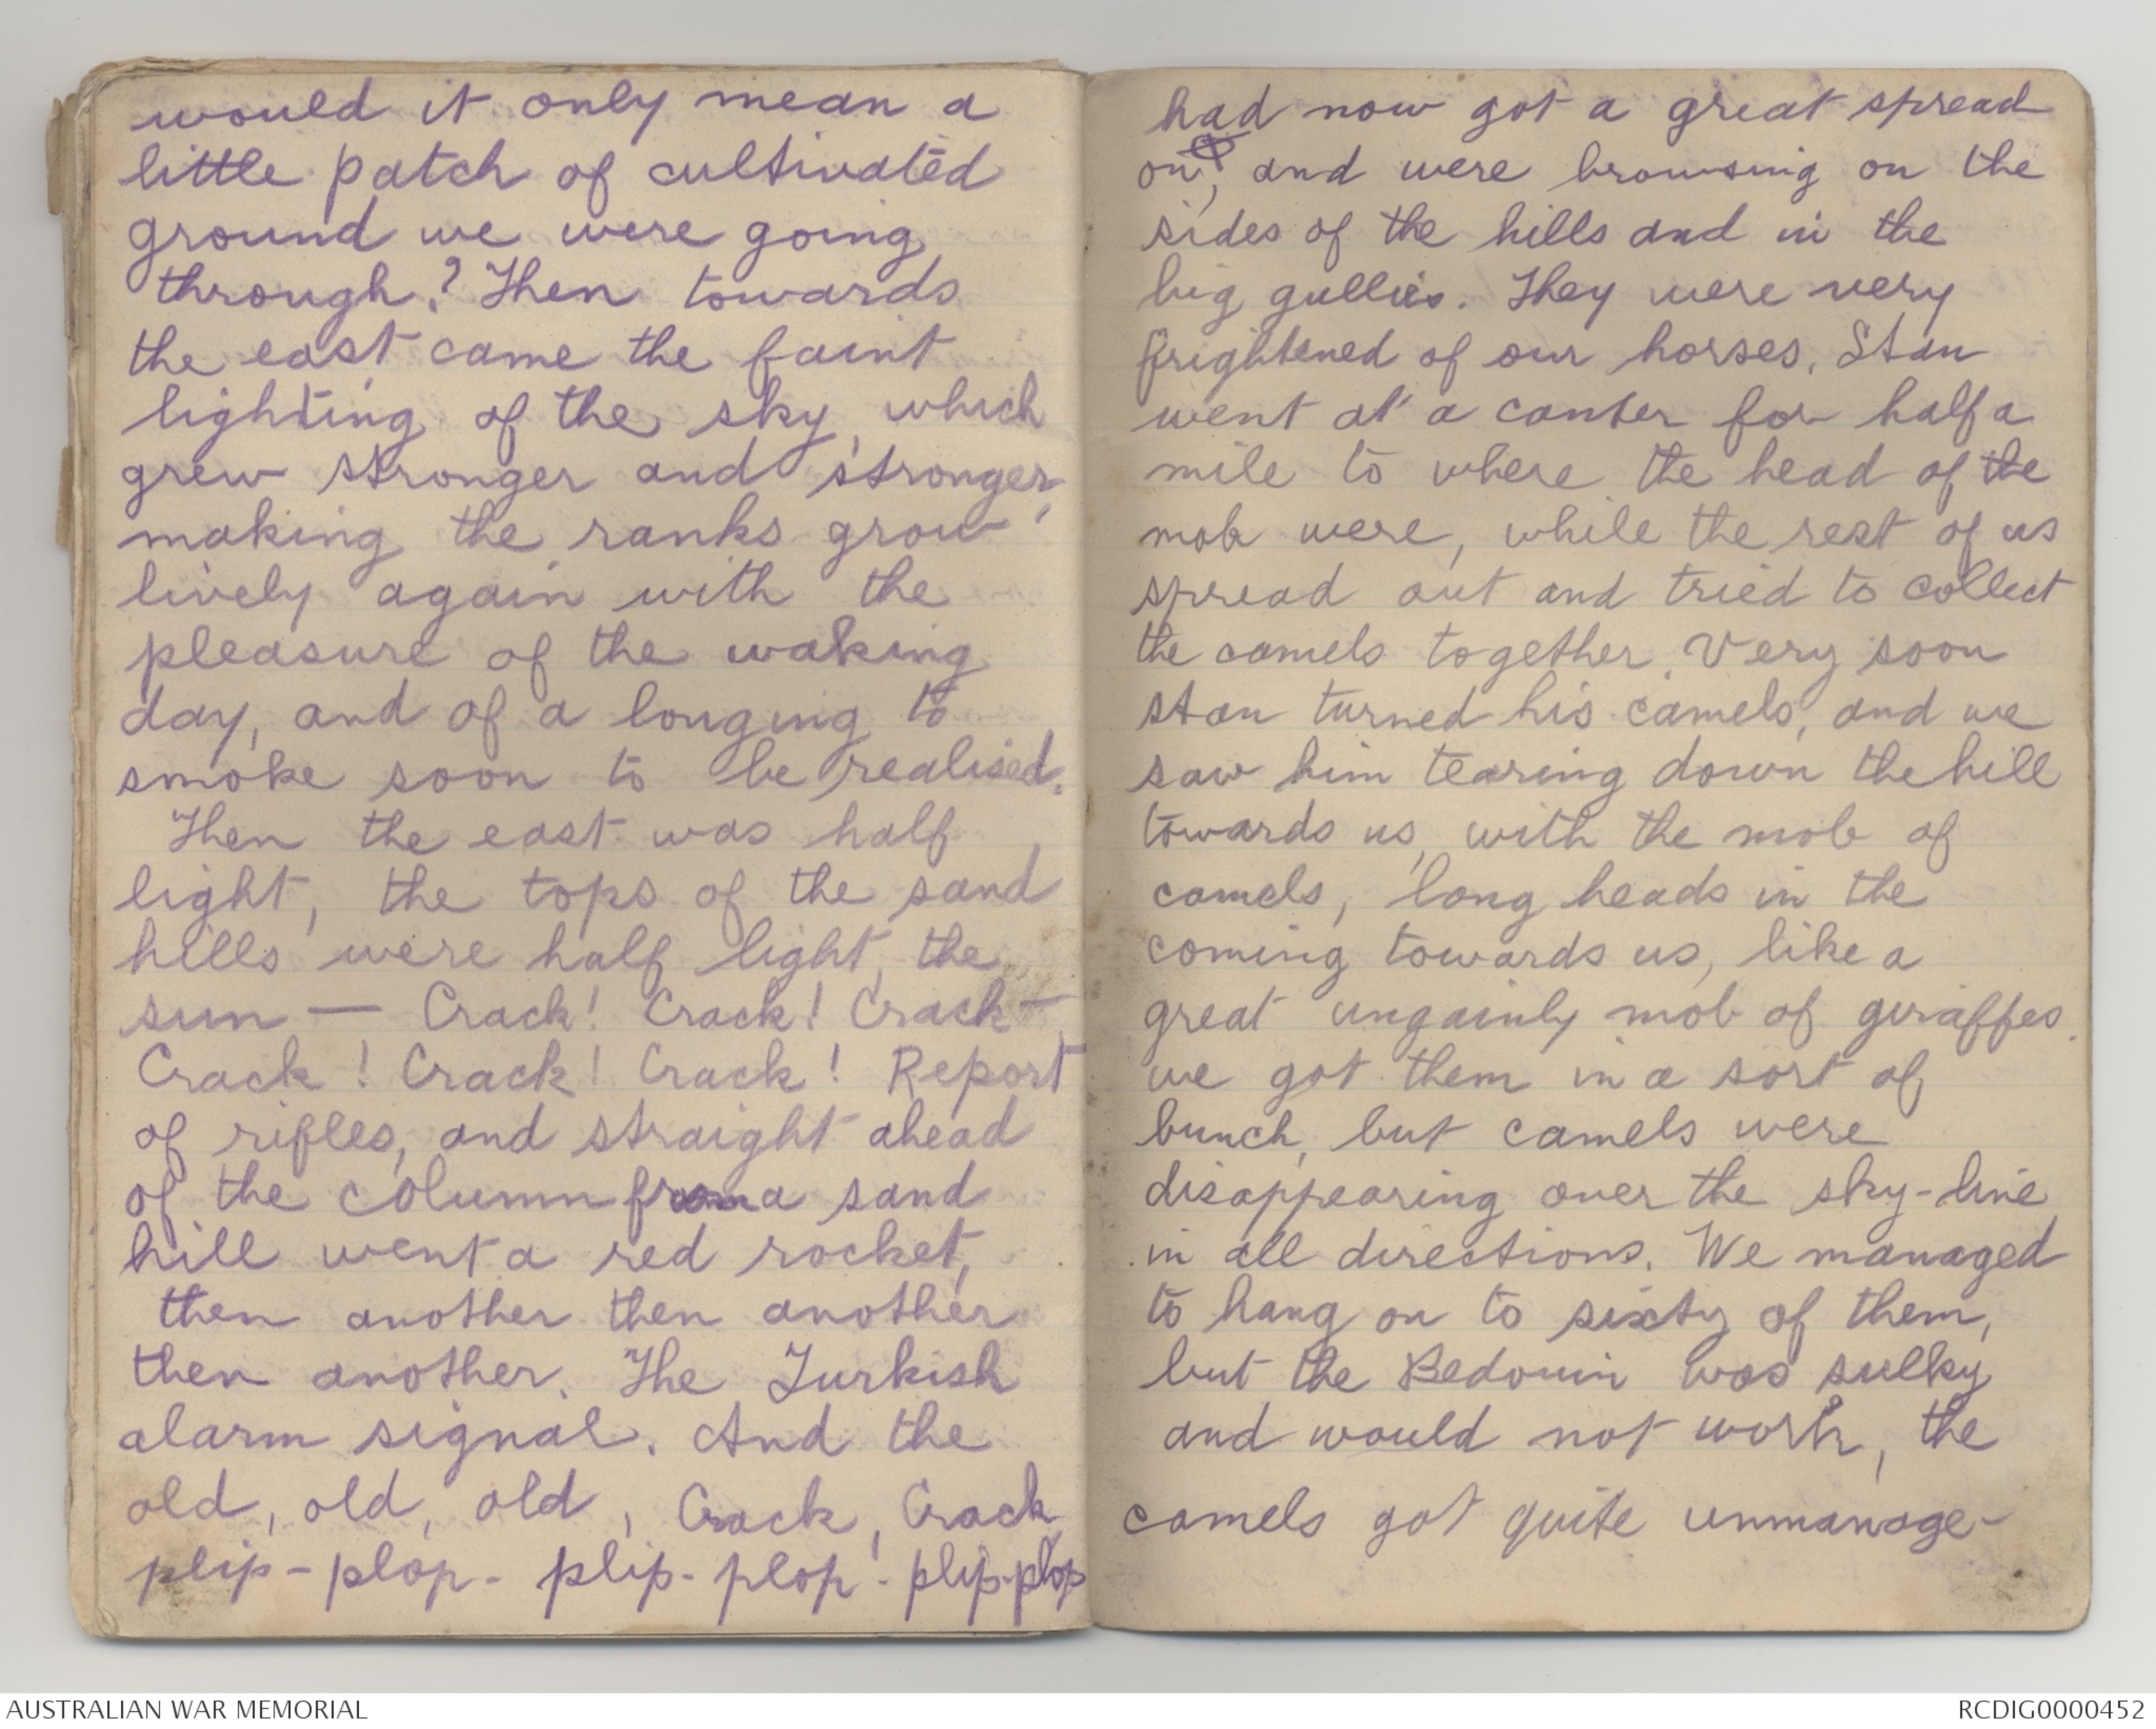 would it only mean a
little patch of cultivated
ground we were going
through? Then towards
the east came the faint
lighting of the sky, which
grew stronger and stronger,
making the ranks grow
lively again with the
pleasure of the waking
day, and of a longing to
smoke soon to be realised.
Then the east was half
light, the tops of the sand
hills were half light, the
sun — Crack! Crack! Crack—
Crack! Crack! Crack! Report
of rifles, and straight ahead
of the column from a sand
hill went a red rocket,
then another then another
then another. The Turkish
alarm signal. And the
old, old, old, Crack, Crack
plip-plop- plip-plop!- plip-plop
had now got a great spread
on, and were browsing on the
sides of the hills and in the
big gullies. They were very
frightened of our horses. Stan
went at a canter for half a
mile to where the head of the
mob were, while the rest of us
spread out and tried to collect
the camels together. Very soon
Stan turned his camels, and we
saw him tearing down the hill
towards us, with the mob of
camels, long heads in the
coming towards us, like a
great ungainly mob of giraffes.
we got them in a sort of
bunch, but camels were
disappearing over the sky-line
in all directions. We managed
to hang on to sixty of them,
but the Bedouin was sulky
and would not work, the
camels got quite unmanage-
AUSTRALIAN WAR MEMORIAL
RCDIG0000452